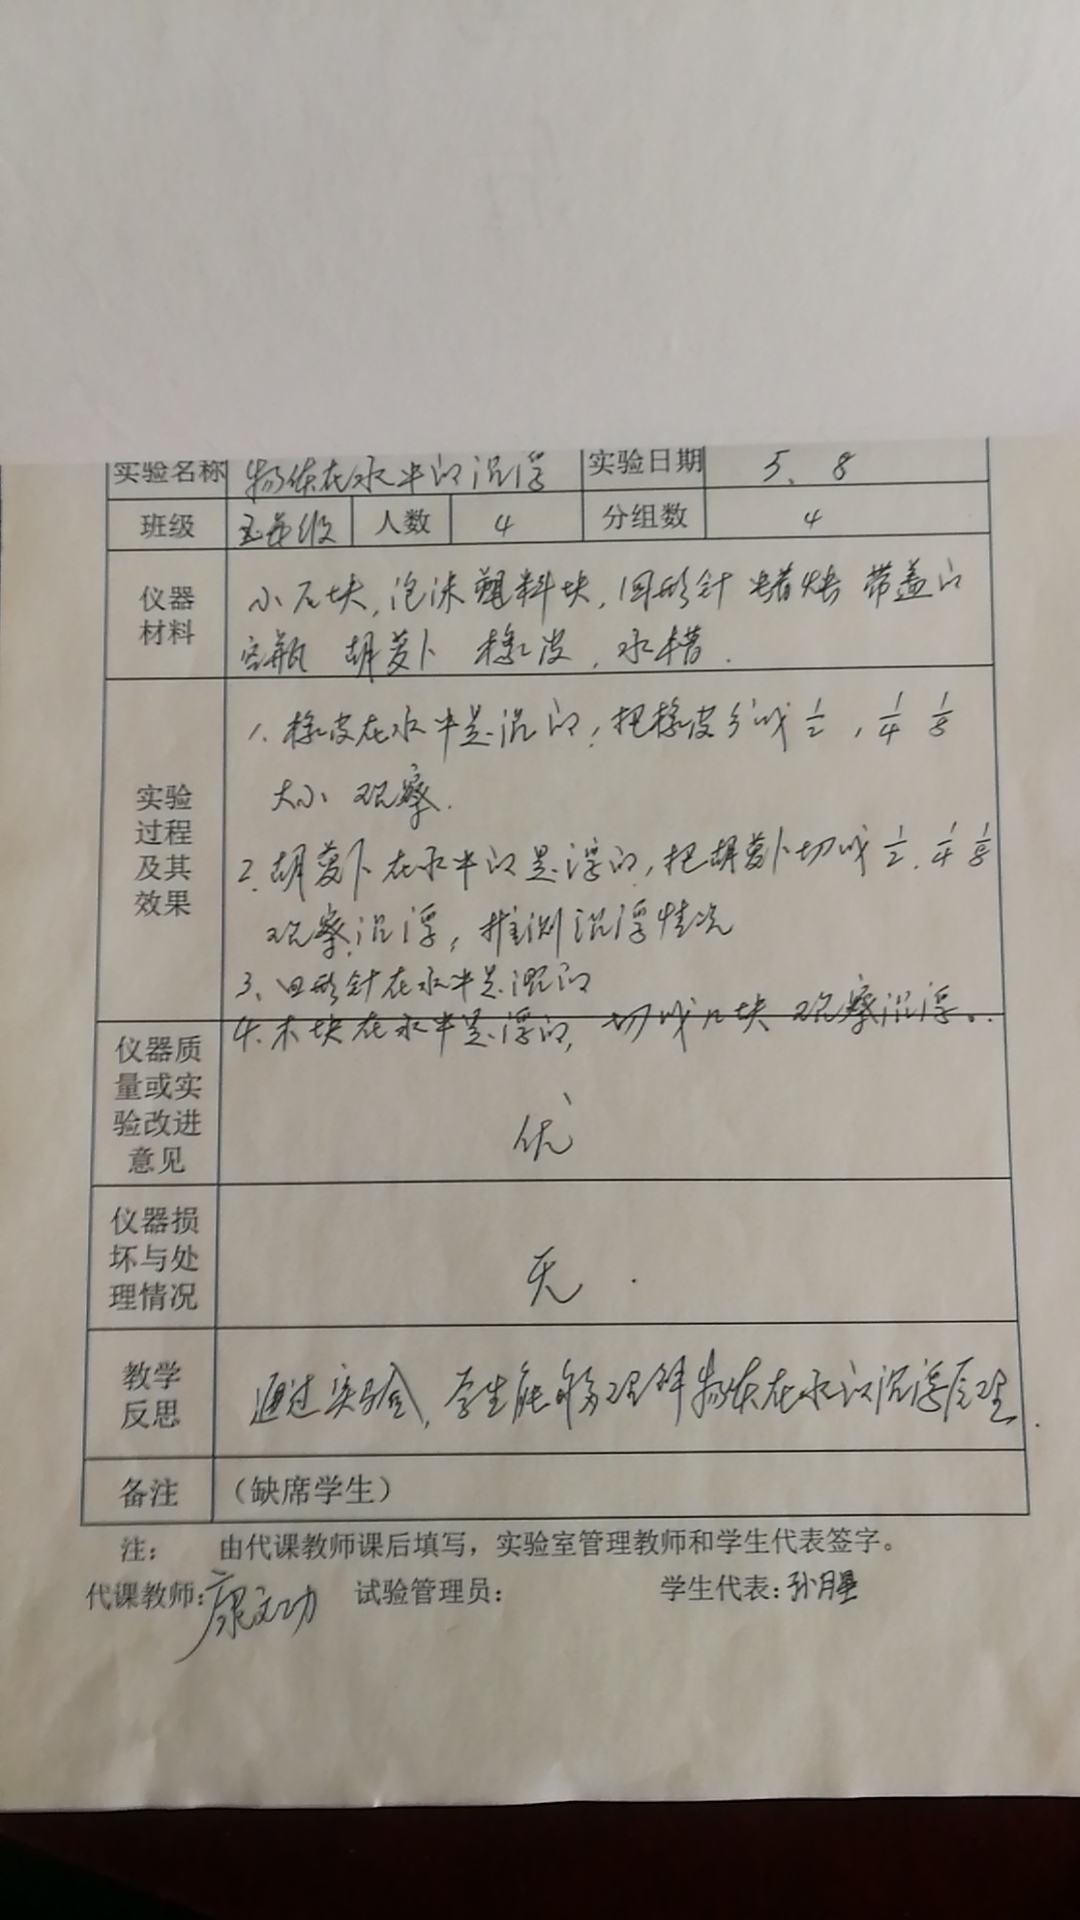 实验名称 物体在水中的沉浮 实验日期 5、8
班级 五年级 人数 4 分组数 4
仪器材料 小石块,泡沫塑料块,回形针 蜡烛 带盖的
空瓶 胡萝卜 橡皮,水槽.
实验过程及其效果
1、橡皮在水中是沉的,把橡皮分成 1/2,1/4 1/8
大小 观察.
2、胡萝卜在水中的是浮的,把胡萝卜切成 1/2、1/4 1/8
观察沉浮,推测沉浮情况
3、回形针在水中是沉的
4、木块在水中是浮的,切成几块 观察沉浮。
仪器质量或实验改进意见 优
仪器损坏与处理情况 无.
教学反思 通过实验,学生能够理解物体在水的沉浮原理.
备注 (缺席学生)
注: 由代课教师课后填写,实验室管理教师和学生代表签字。
代课教师:康文功 试验管理员: 学生代表:孙月星